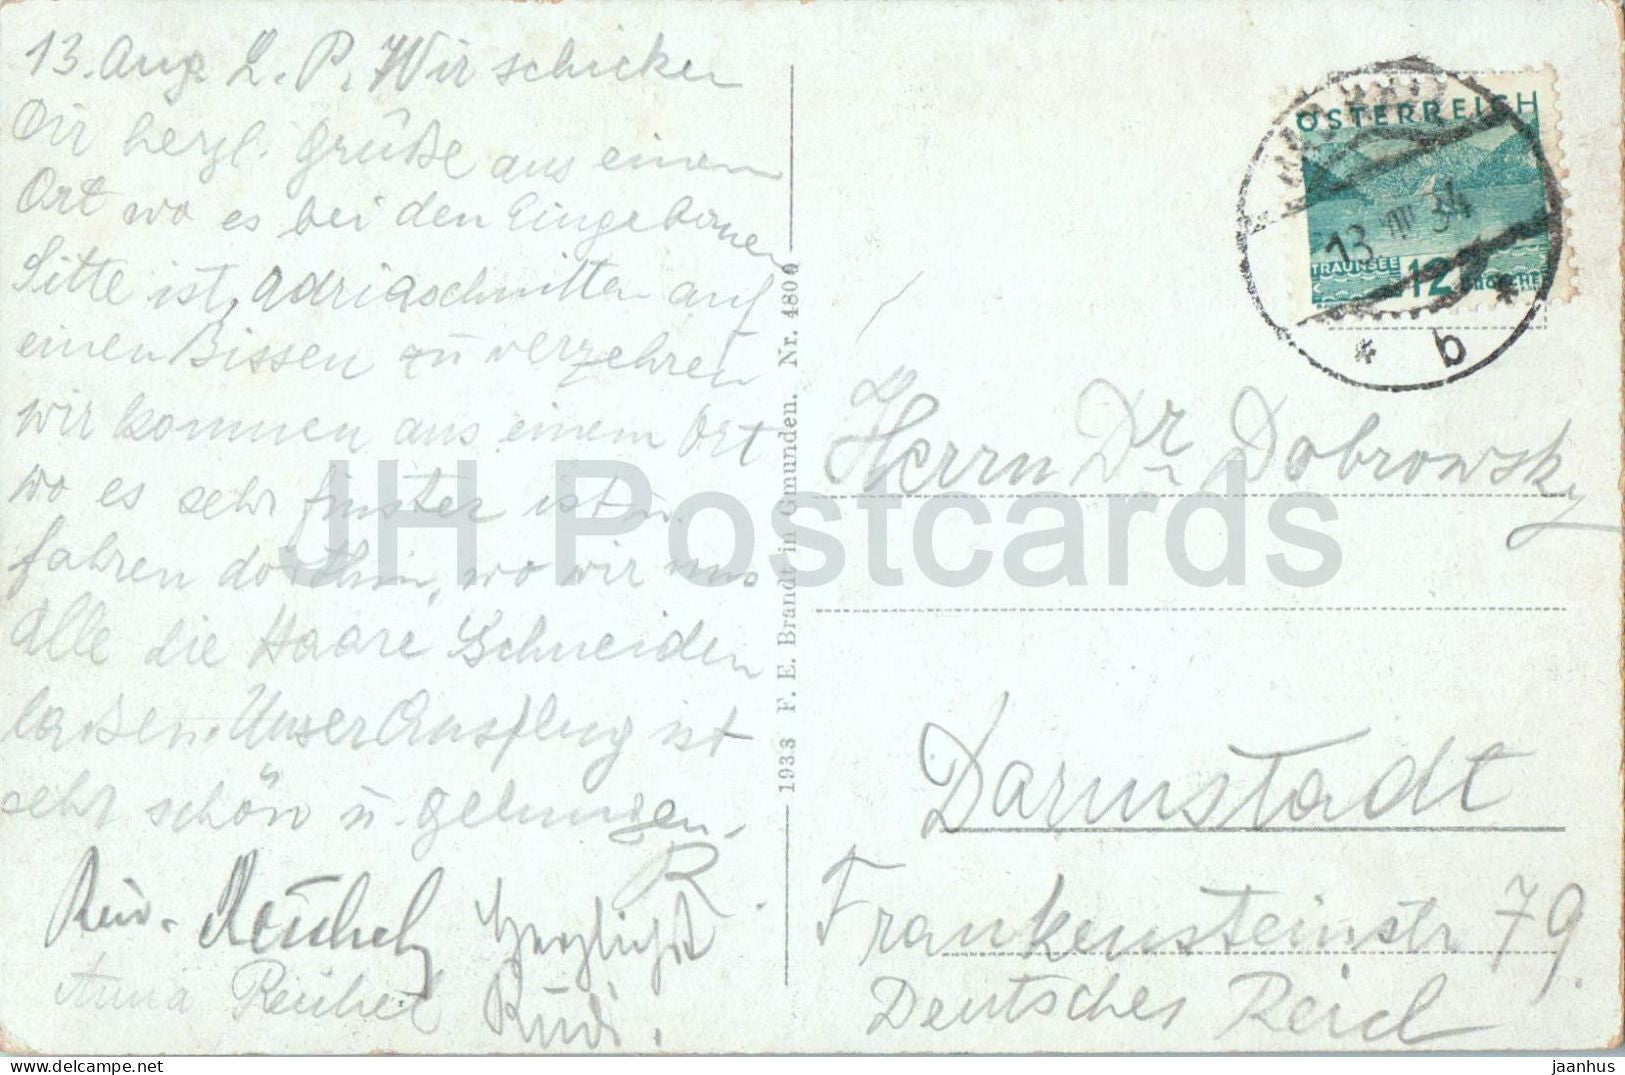 13. Aug. L. P. Wir schicken
Dir herzl. Grüße aus einem
Ort wo es bei den Eingeborenen
Sitte ist, Adriaschnitten auf
einen Bissen zu verzehren
wir kommen aus einem Ort
wo es sehr finster ist u.
fahren dorthin, wo wir uns
alle die Haare schneiden
laßen. Unser Ausflug ist
sehr schön u. gelungen.
R
Herzlichst
Anna Reichel
Rudi.
1933 F. E. Brandt in Gmunden. Nr. 4800
ÖSTERREICH
TRAUNSEE 12 GROSCHEN
13 VIII 34
* b *
Herrn Dr. Dobrowsky
Darmstadt
Frankensteinstr 79.
Deutsches Reich
JH Postcards
jaanhus